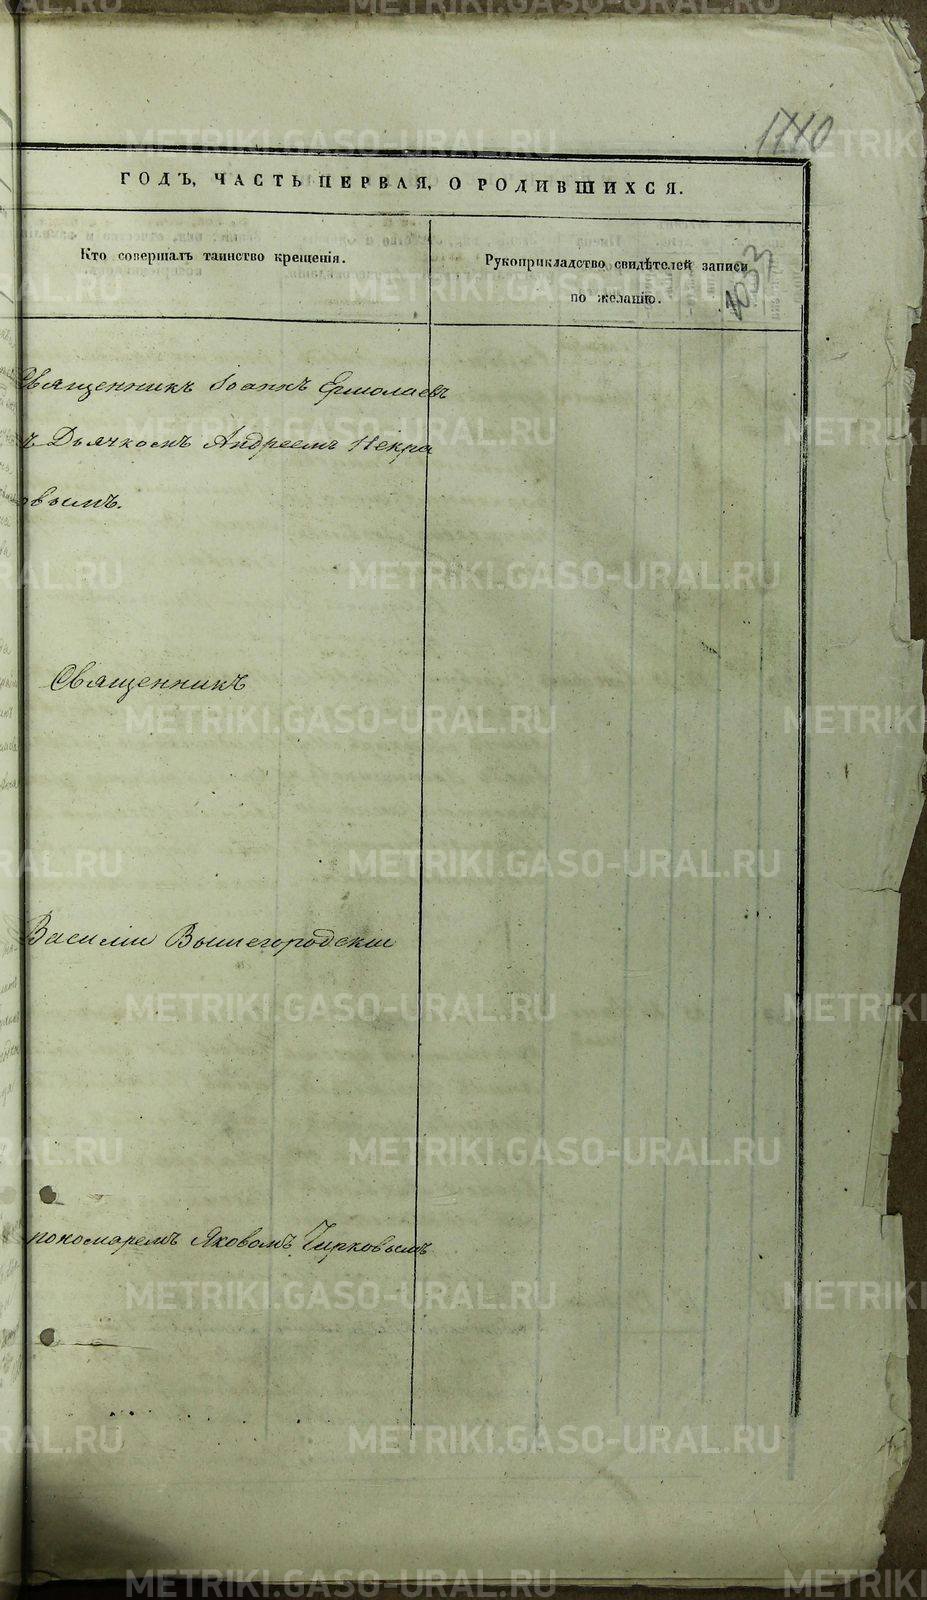 1110
ГОДЪ, ЧАСТЬ ПЕРВАЯ, О РОДИВШИХСЯ.
Кто совершалъ таинство крещенія.
Рукоприкладство свидѣтелей записи
по желанію.
1033
Священникъ Іоаннъ Ермолаевъ
съ Дьячкомъ Андреемъ Некра
совымъ.
Священникъ
Василій Вышегородскій
пономаремъ Яковомъ Чирковымъ
METRIKI.GASO-URAL.RU